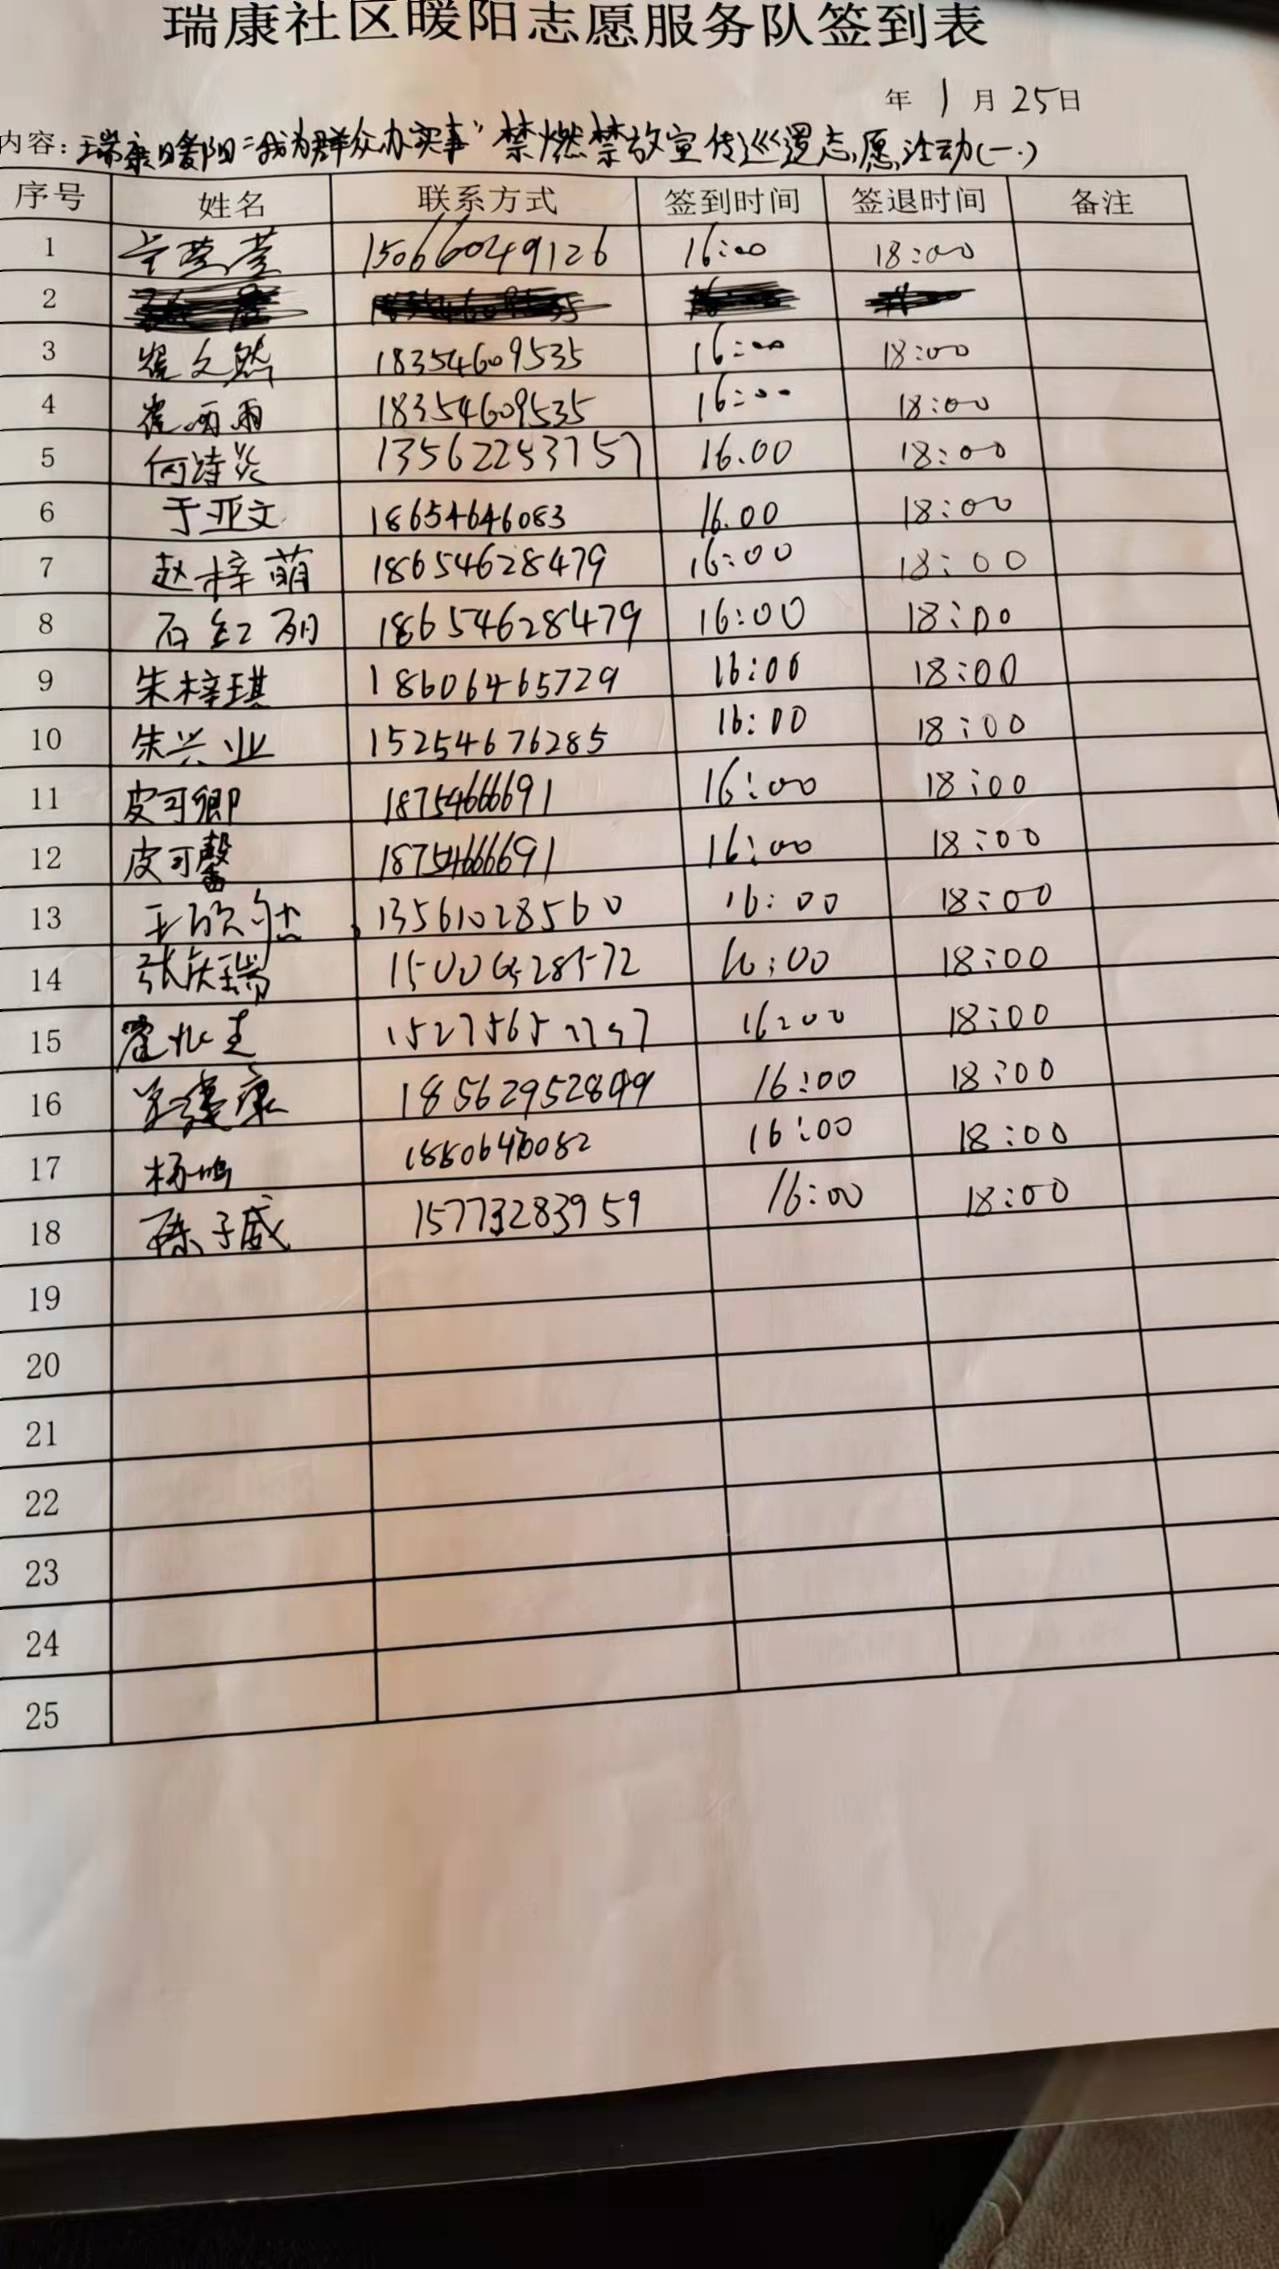 瑞康社区暖阳志愿服务队签到表
年 1 月 25日
内容：瑞康暖阳“我为群众办实事”禁燃禁放宣传巡逻志愿活动(一)
序号 姓名 联系方式 签到时间 签退时间 备注
1 15066049126 16:00 18:00
2
3 文然 18354609535 16:00 18:00
4 崔雨雨 18354609535 16:00 18:00
5 何诗 13562253757 16.00 18:00
6 于亚文 18654646083 16.00 18:00
7 赵梓萌 18654628479 16:00 18:00
8 石红丽 18654628479 16:00 18:00
9 朱梓琪 18606465729 16:00 18:00
10 朱兴业 15254676285 16:00 18:00
11 皮可卿 18754666691 16:00 18:00
12 皮可馨 18754666691 16:00 18:00
13 王欣 13561028560 16:00 18:00
14 张庆瑞 16:00 18:00
15 16:00 18:00
16 康 16:00 18:00
17 杨鸣 16:00 18:00
18 陈子威 15773283959 16:00 18:00
19
20
21
22
23
24
25